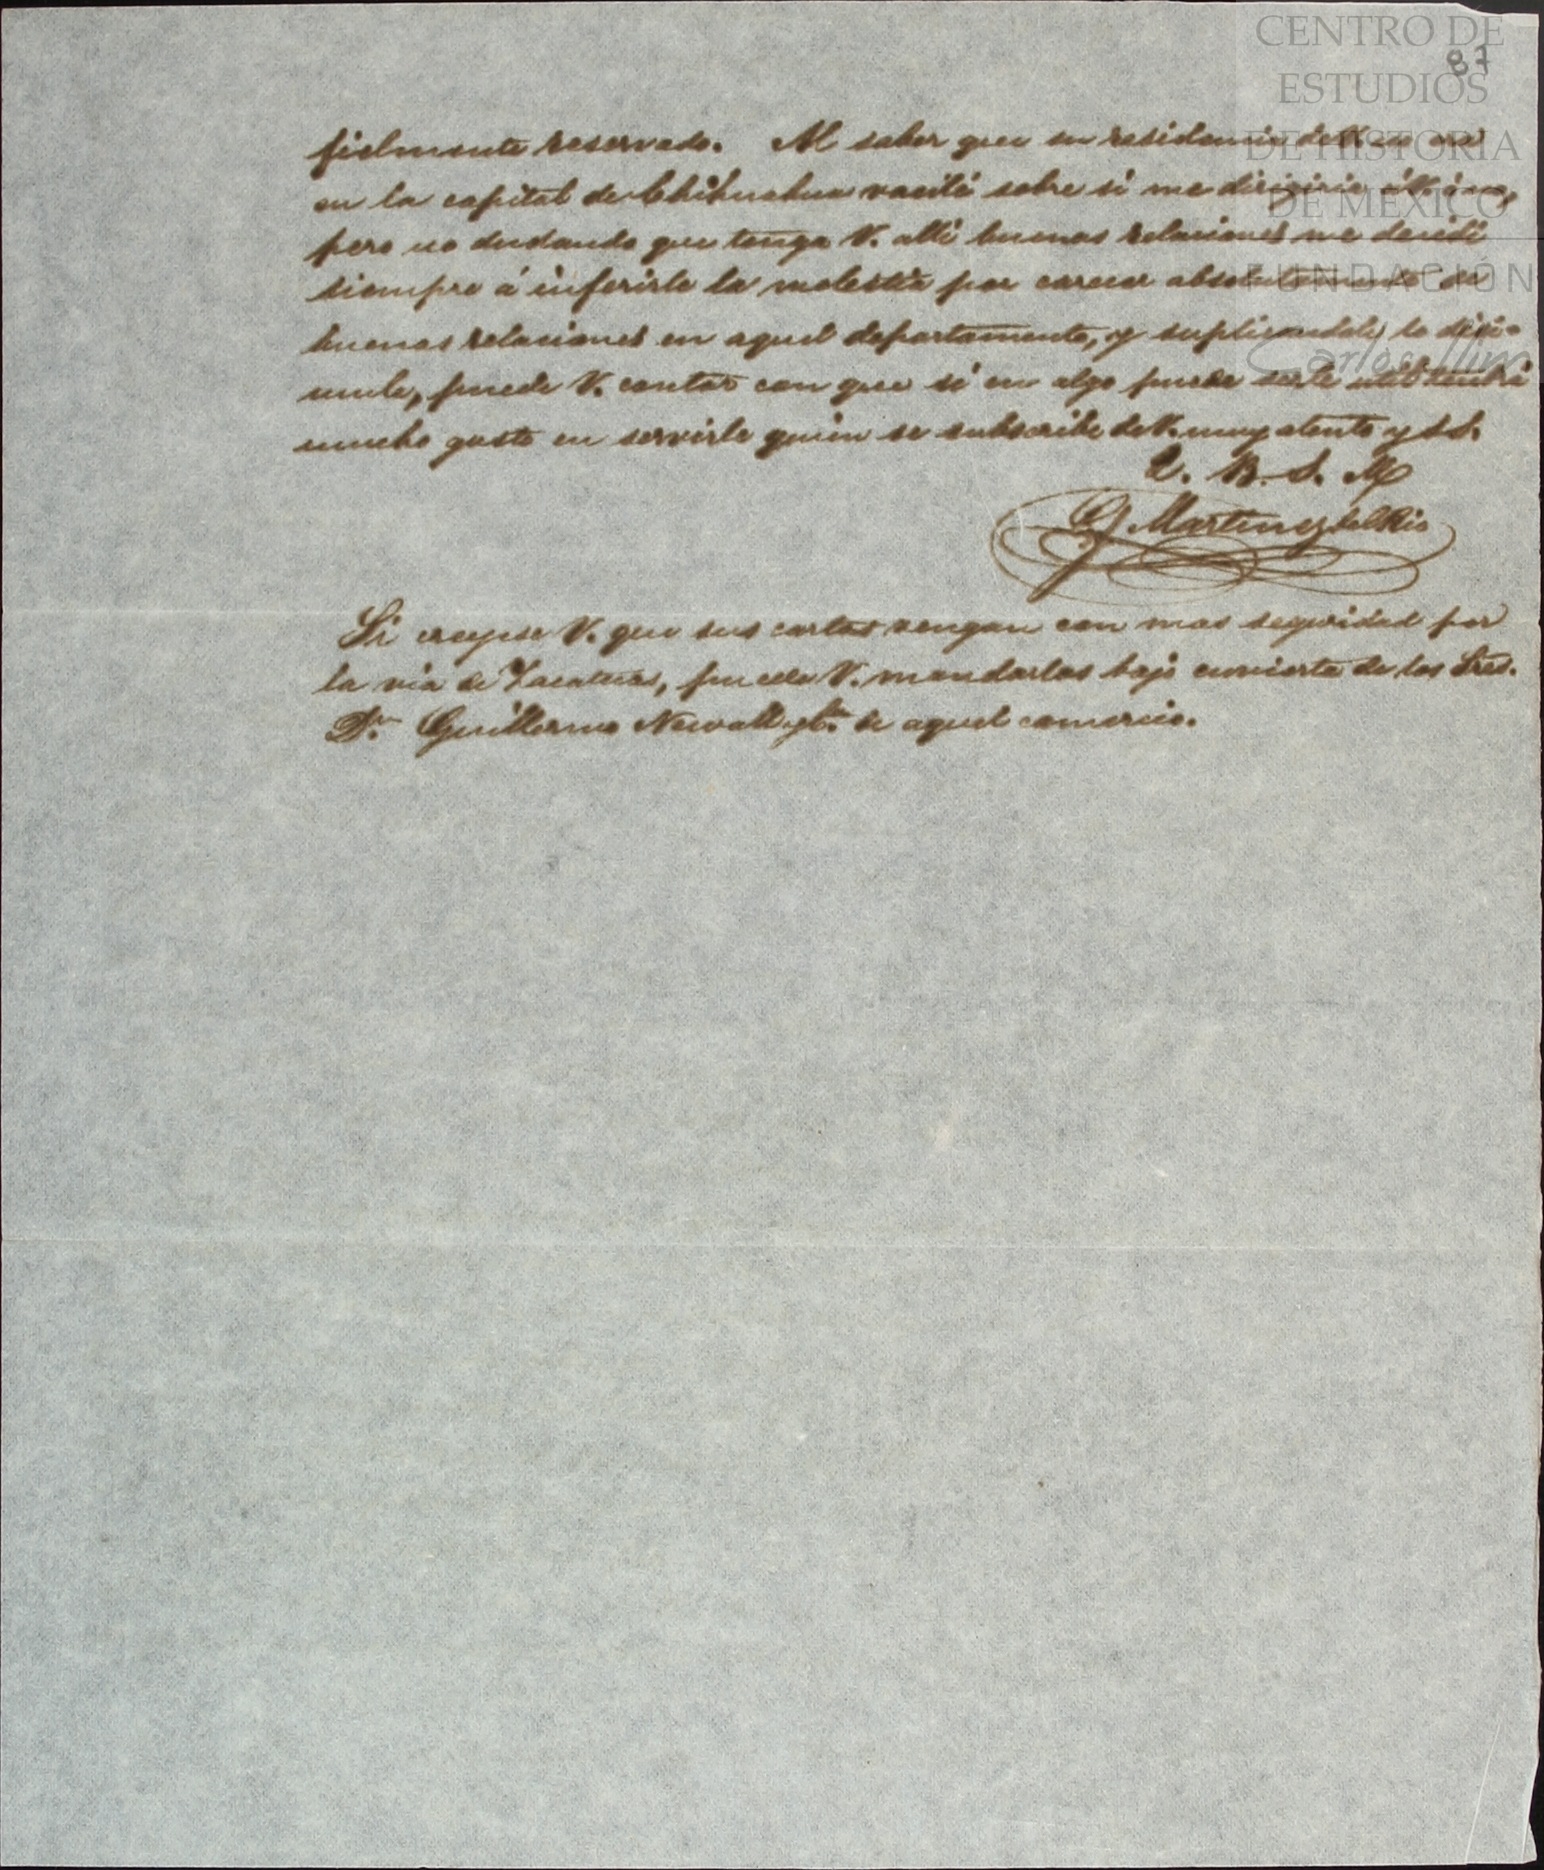 CENTRO DE
ESTUDIOS
DE HISTORIA
DE MÉXICO
FUNDACIÓN
Carlos Slim
87
fielmente reservado. Al saber que su residencia de V. no era
en la capital de Chihuahua vacilé sobre si me dirigiria á V. ó no,
pero no dudando que tenga V. allí buenas relaciones me decidí
siempre á inferirle la molestia por carecer absolutamente de
buenas relaciones en aquel departamento, y suplicandole lo disi-
mule, puede V. contar con que si en algo puede serle util tendrá
mucho gusto en servirle quien se subscribe de V. muy atento y S.S.
Q. B. S. M
Martinez del Rio
Si creyese V. que sus cartas vengan con mas seguridad por
la via de Zacatecas, puede V. mandarlas bajo cuvierta de los Sres.
Dn. Guillermo Newall y Ca. de aquel comercio.